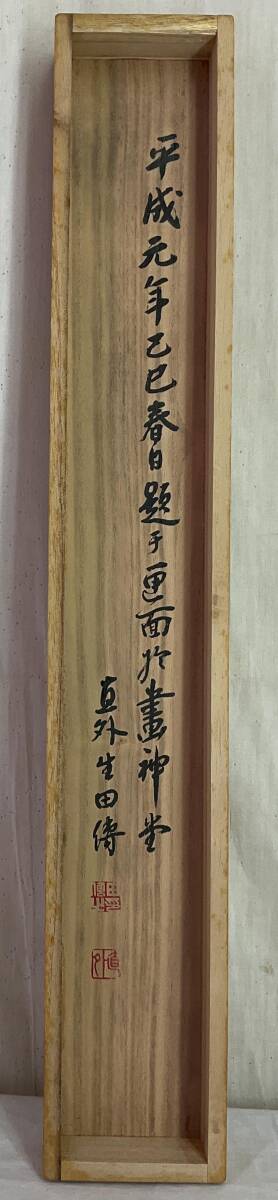 平成元年己巳春日題于匣面於畫神堂
直外生田